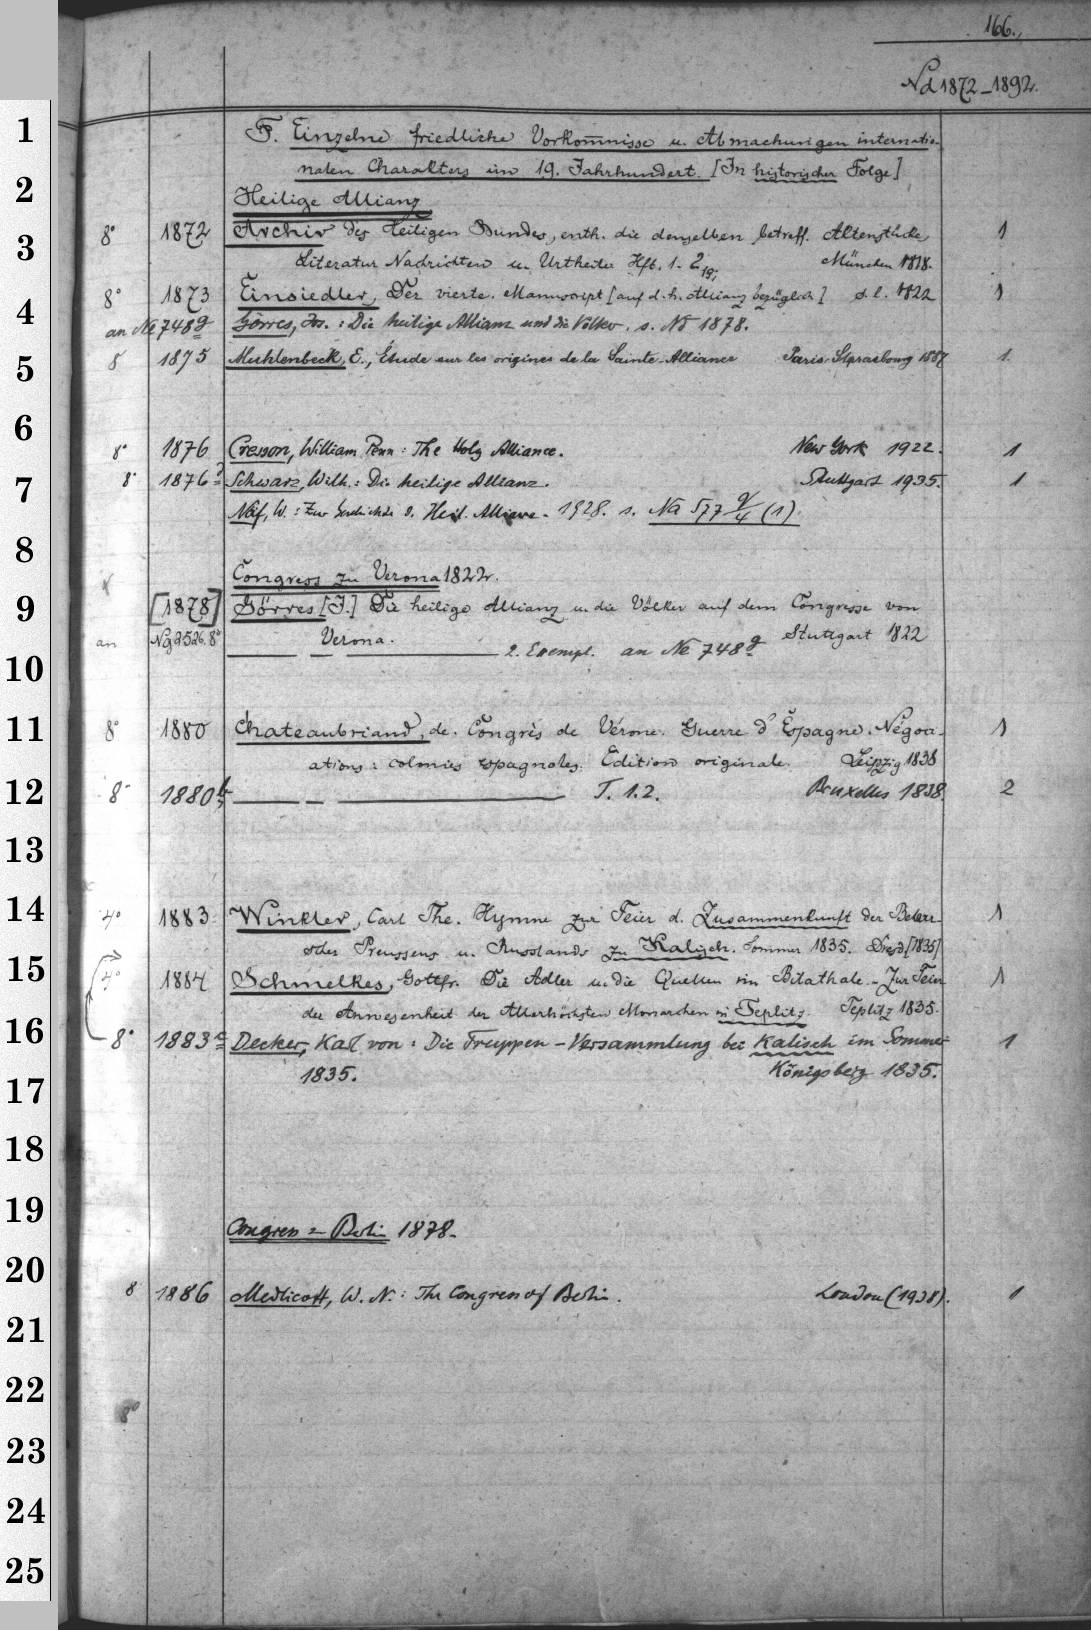 166.
Nd 1872-1892.
1
F. Einzelne friedliche Vorkom̅nisse u. Abmachungen internatio-
nalen Charakters im 19. Jahrhundert. [In historischer Folge]
2
Heilige Allianz
3
8° 1872 Archiv des heiligen Bundes, enth. die denselben betreff. Altenstücke, 1
Literatur Nachrichten u. Urtheile Hft. 1-2 München 1818.
8° 1873 Einsiedler, Der vierte. Manuscript [auf d. h. Allianz bezüglich] s. l. 1822 1
4
an Ne 748g Görres, Jos.: Die heilige Allianz und die Völker. s. Nd 1878.
5
8° 1875 Muhlenbeck, E., Étude sur les origines de la Sainte-Alliance Paris-Strasbourg 1887 1.
6
8° 1876 Cresson, William Penn: The Holy Alliance. New York 1922. 1
7
8° 1876 Schwarz, Wilh.: Die heilige Allianz. Stuttgart 1935. 1
Näf, W.: Zur Geschichte d. Heil. Allianz. 1928. s. Na 577 g/4 (1).
8
Congress zu Verona 1822.
9
[1878] Görres [J.] Die heilige Allianz u. die Völker auf dem Congresse von
an Ng 2526. 8° Verona. Stuttgart 1822
10
— — — 2. Exempl. an Ne 748g
11
8° 1880 Chateaubriand, de. Congrès de Vérone. Guerre d'Espagne. Négoci- 1
ations: colonies espagnoles. Édition originale. Leipzig 1838
12
8° 1880b — — — T. 1.2. Bruxelles 1838. 2
13
14
4° 1883 Winkler, Carl The. Hymne zur Feier d. Zusammenkunft der Beherr- 1
scher Preussens u. Russlands zu Kalisch. Sommer 1835. Dresd [1835]
15
4° 1884 Schmelkes, Gottfr. Die Adler u. die Quellen im Bilathale.- Zur Feier 1
der Anwesenheit der Allerhöchsten Monarchen in Teplitz. Teplitz 1835.
16
8° 1883a Decker, Karl von: Die Truppen-Versammlung bei Kalisch im Sommer 1
1835. Königsberg 1835.
17
18
19
Congress zu Berlin 1878.
20
8° 1886 Medlicott, W. N.: The Congress of Berlin. London (1938). 1
21
22
8°
23
24
25